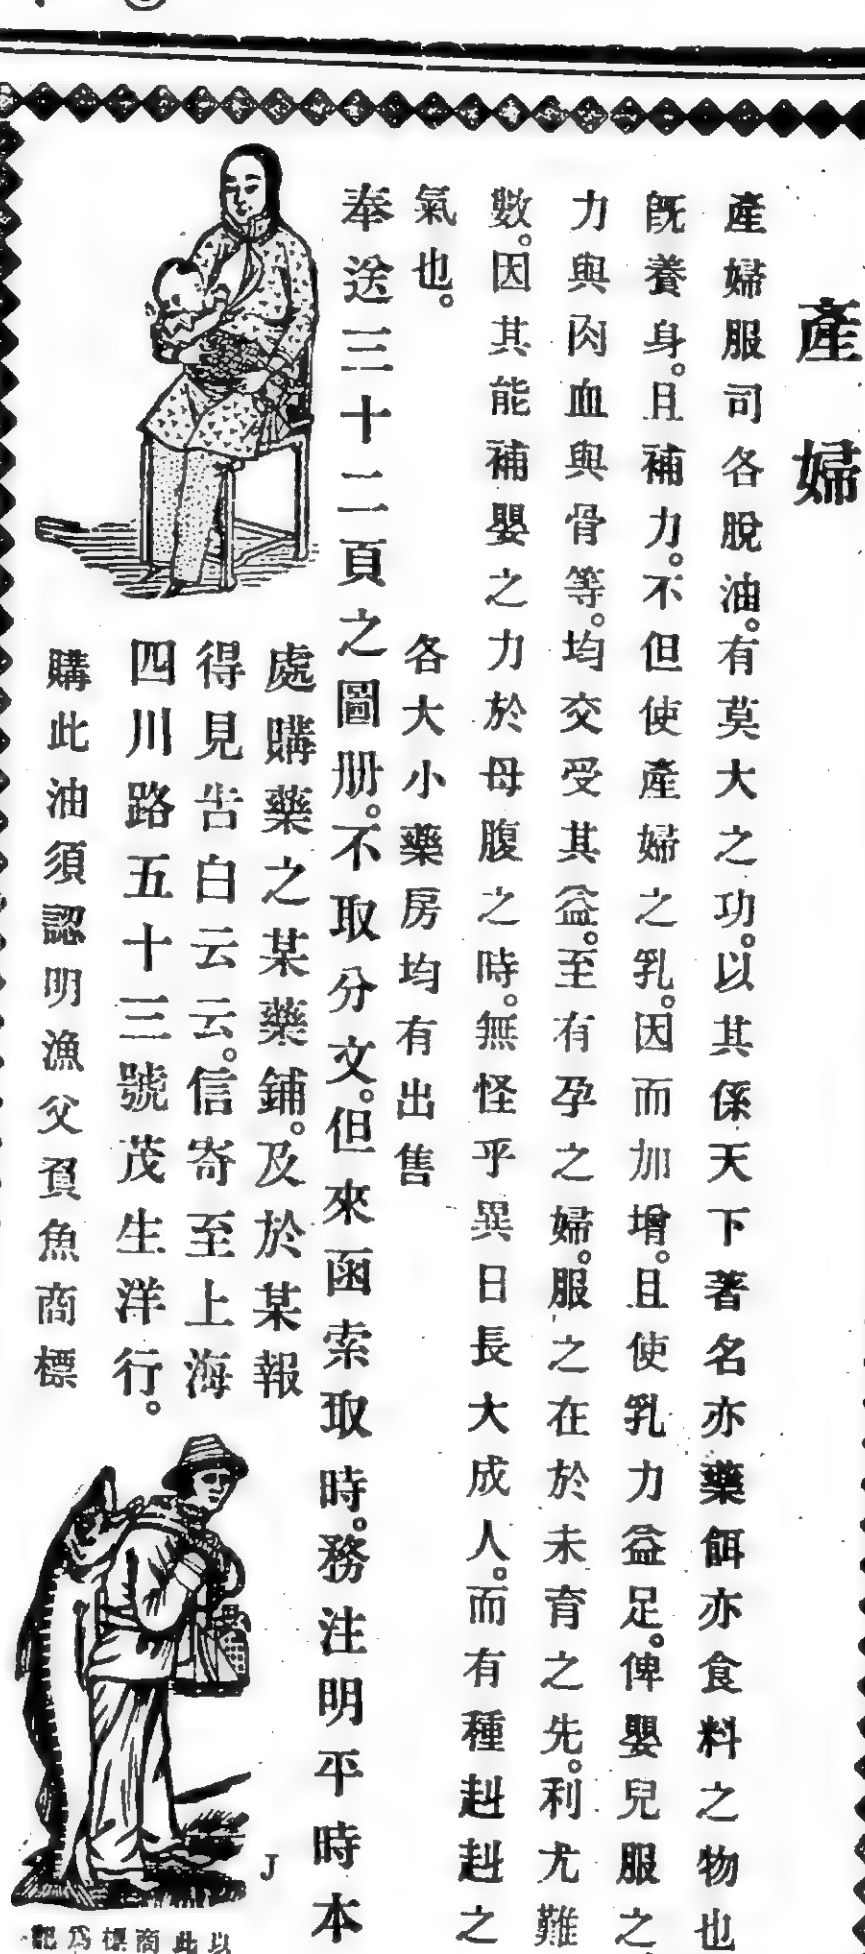 產婦
產婦服司各脫油。有莫大之功。以其係天下著名亦藥餌亦食料之物也
旣養身。且補力。不但使產婦之乳。因而加增。且使乳力益足。俾嬰兒服之
力與肉血與骨等。均交受其益。至有孕之婦。服之在於未育之先。利尤難
數。因其能補嬰之力於母腹之時。無怪乎異日長大成人。而有種赳赳之
氣也。
各大小藥房均有出售
奉送三十二頁之圖册。不取分文。但來函索取時。務注明平時本
處購藥之某藥鋪。及於某報
得見告白云云。信寄至上海
四川路五十三號茂生洋行。
購此油須認明漁父負魚商標
J
以此商標爲記